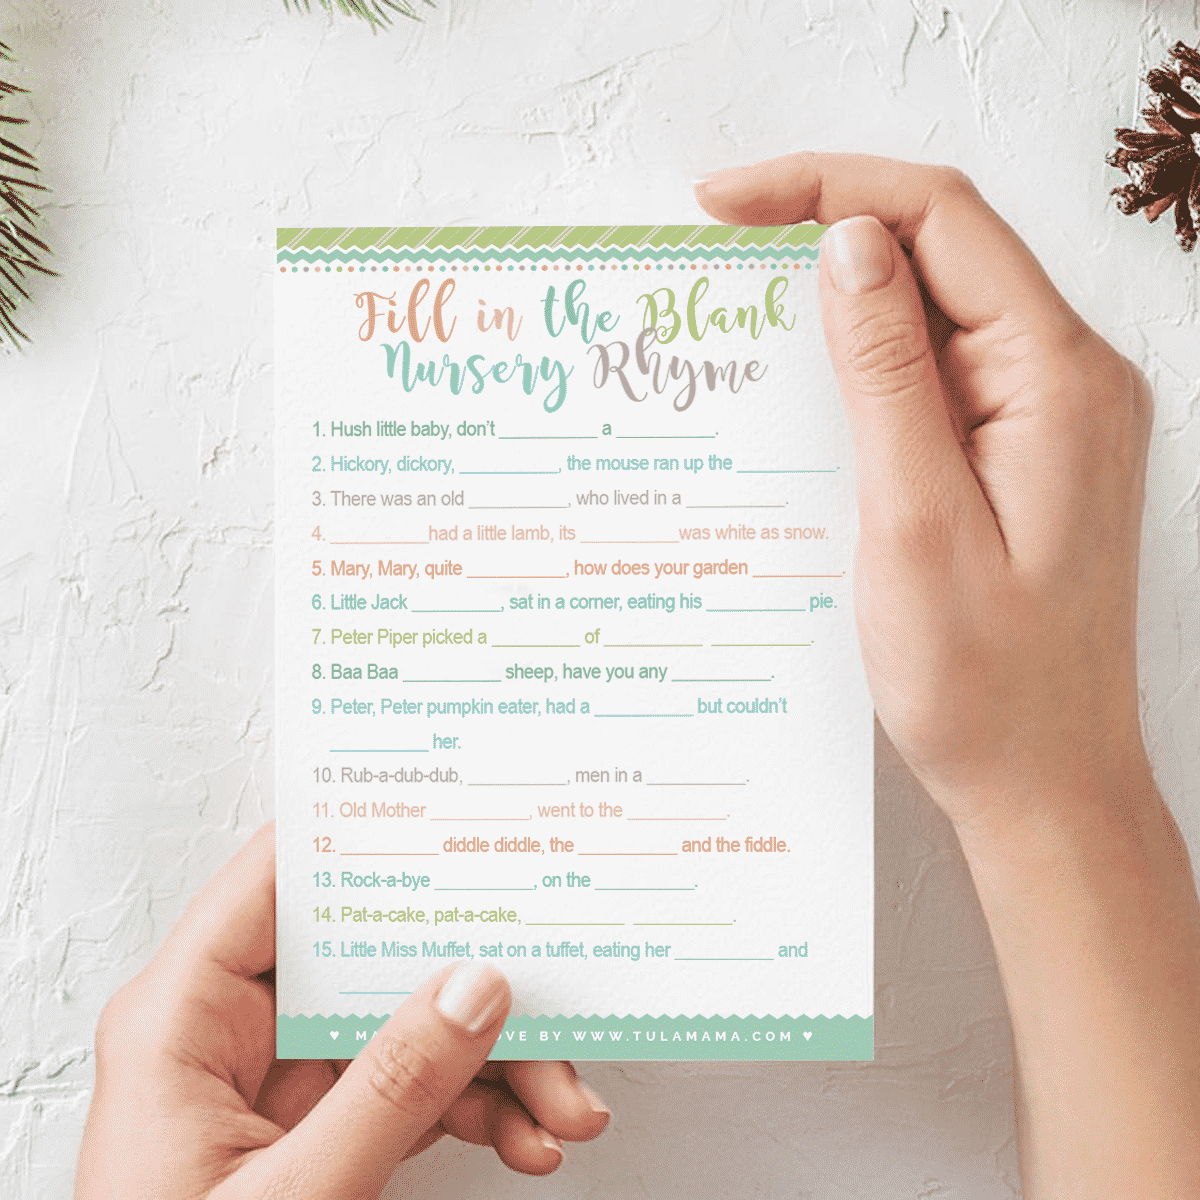 Fill in the Blank
Nursery Rhyme
1. Hush little baby, don't __________ a __________.
2. Hickory, dickory, __________, the mouse ran up the __________.
3. There was an old __________, who lived in a __________.
4. __________had a little lamb, its __________was white as snow.
5. Mary, Mary, quite __________, how does your garden _________.
6. Little Jack _________, sat in a corner, eating his __________ pie.
7. Peter Piper picked a _________ of __________ __________.
8. Baa Baa __________ sheep, have you any __________.
9. Peter, Peter pumpkin eater, had a __________ but couldn't
__________ her.
10. Rub-a-dub-dub, __________, men in a __________.
11. Old Mother __________, went to the __________.
12. __________ diddle diddle, the __________ and the fiddle.
13. Rock-a-bye __________, on the __________.
14. Pat-a-cake, pat-a-cake, __________ __________.
15. Little Miss Muffet, sat on a tuffet, eating her __________ and
________
♥ BY WWW.TULAMAMA.COM ♥